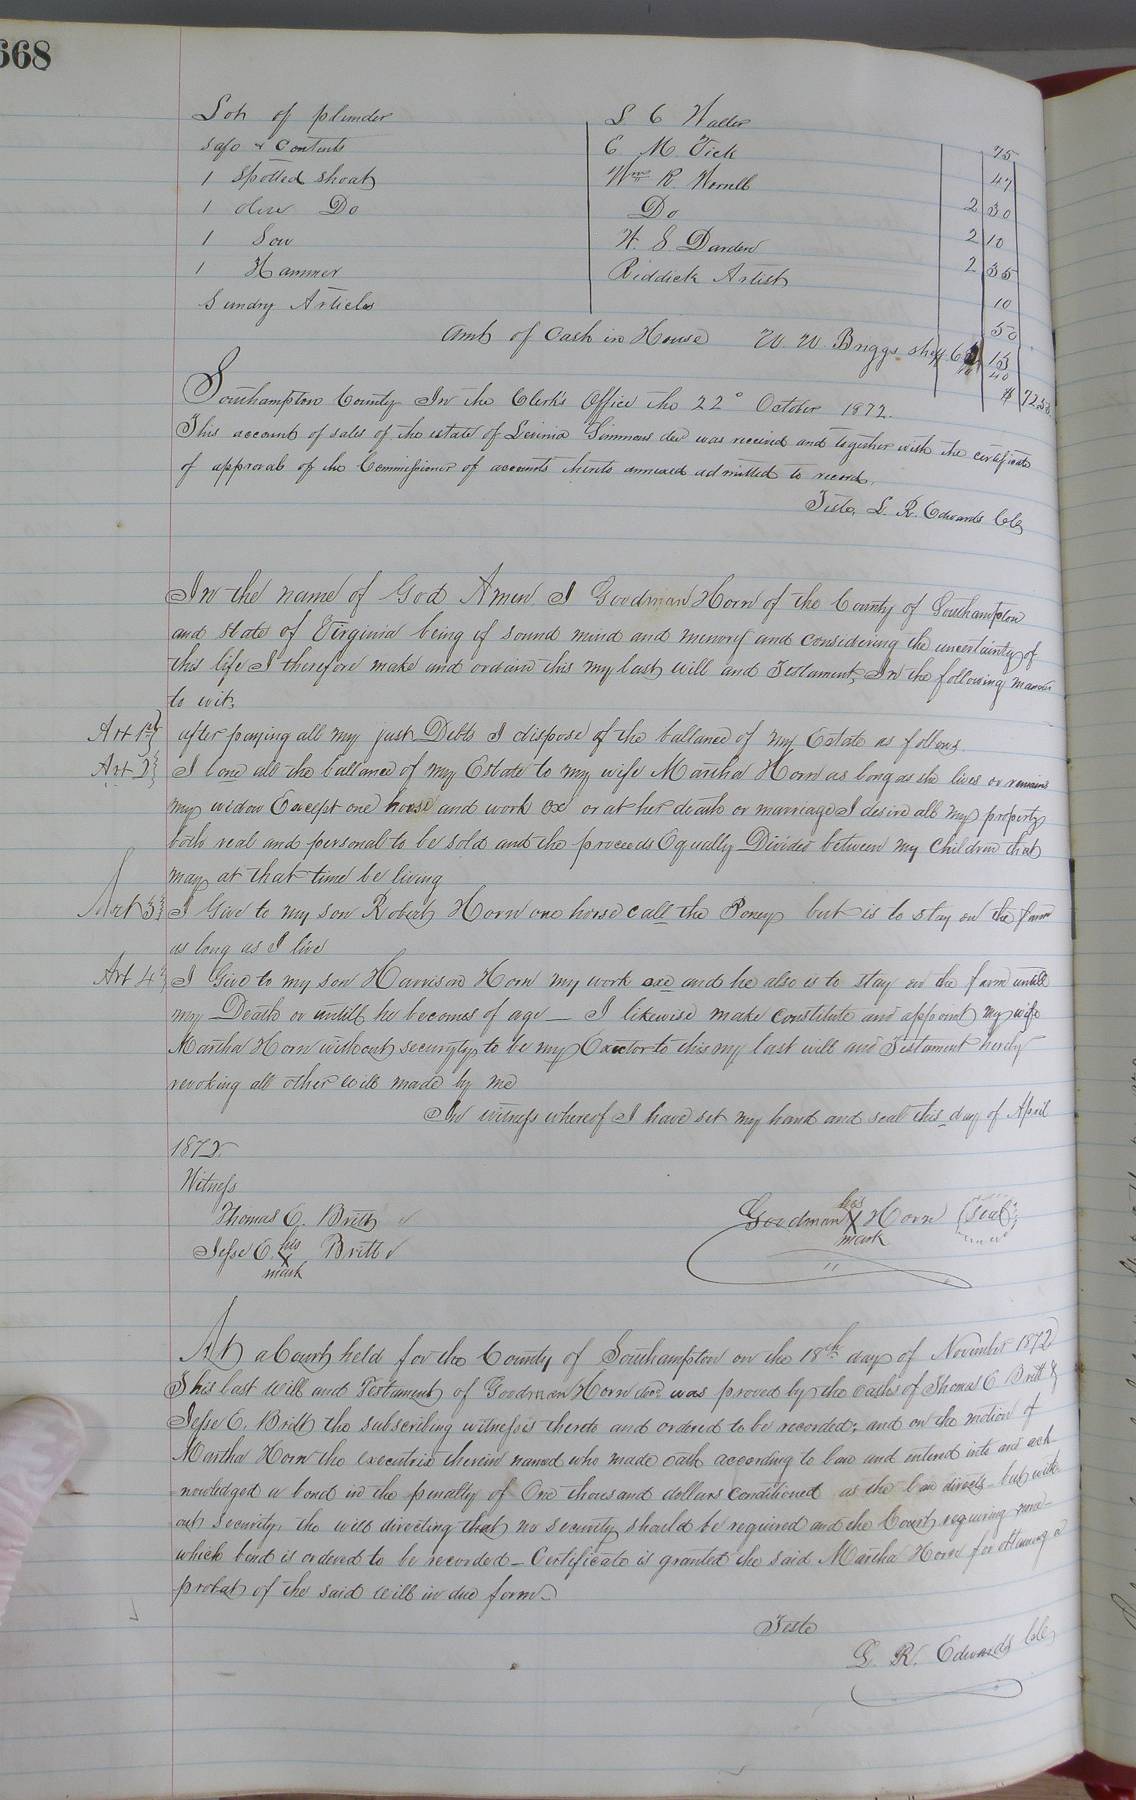 668
Lot of plunder S C Waller 75
Safo & Contents E M. Tick 47
1 Spotted Shoat Wm R. Worrell 2 30
1 olive Do Do 2 10
1 Sow W. S. Darden 2 35
1 Hammer Riddick Artist 10
Sundry Articles 50
Amt of Cash in House W. W. Briggs shff
Southampton County In the Clerk's Office the 22° October 1872.
This account of sales of the estate of Levinia Simmons dec was received and together with the certificate
of approval of the Commissioner of accounts thereto annexed admitted to record.
Teste, L. R. Edwards Clk
In the name of God Amen. I Goodman Horn of the County of Southampton
and State of Virginia being of sound mind and memory and considering the uncertainty of
this life I therefore make and ordain this my last will and Testament, In the following manner
to wit,
Art 1st after paying all my just Debts I dispose of the ballance of my Estate as follows
Art 2 I lone all the ballance of my Estate to my wife Martha Horn as long as she lives or remains
my widow Except one horse and work ox or at her death or marriage I desire all my property
both real and personal to be sold and the proceeds Equally Divided between my Children that
may at that time be living
Art 3 I Give to my son Robert Horn one horse call the Poney but is to stay on the farm
as long as I live
Art 4 I Give to my son Harrison Horn my work oxe and he also is to stay on the farm untill
my Death or untill he becomes of age — I likewise make constitute and appoint my wife
Martha Horn without securyty to be my Exector to this my last will and Testament hereby
revoking all other Will made by me
In witness whereof I have set my hand and seal this day of April
1872
Witness
Thomas E. Britt
Goodman his X mark Horn (Seal)
Jesse E. his X mark Britt
At a Court held for the County of Southampton on the 18th day of November 1872
This last Will and Testament of Goodman Horn decd was proved by the oaths of Thomas E Britt &
Jesse E. Britt the subscribing witnesses thereto and ordered to be recorded; and on the motion of
Martha Horn the executrix therein named who made oath according to law and entered into and ack
nowledged a bond in the penalty of One thousand dollars conditioned as the law directs but with
out security, the will directing that no security should be required and the Court requiring none —
which bond is ordered to be recorded — Certificate is granted the said Martha Horn for obtaining a
probat of the said will in due form.
Teste
L. R. Edwards Clk